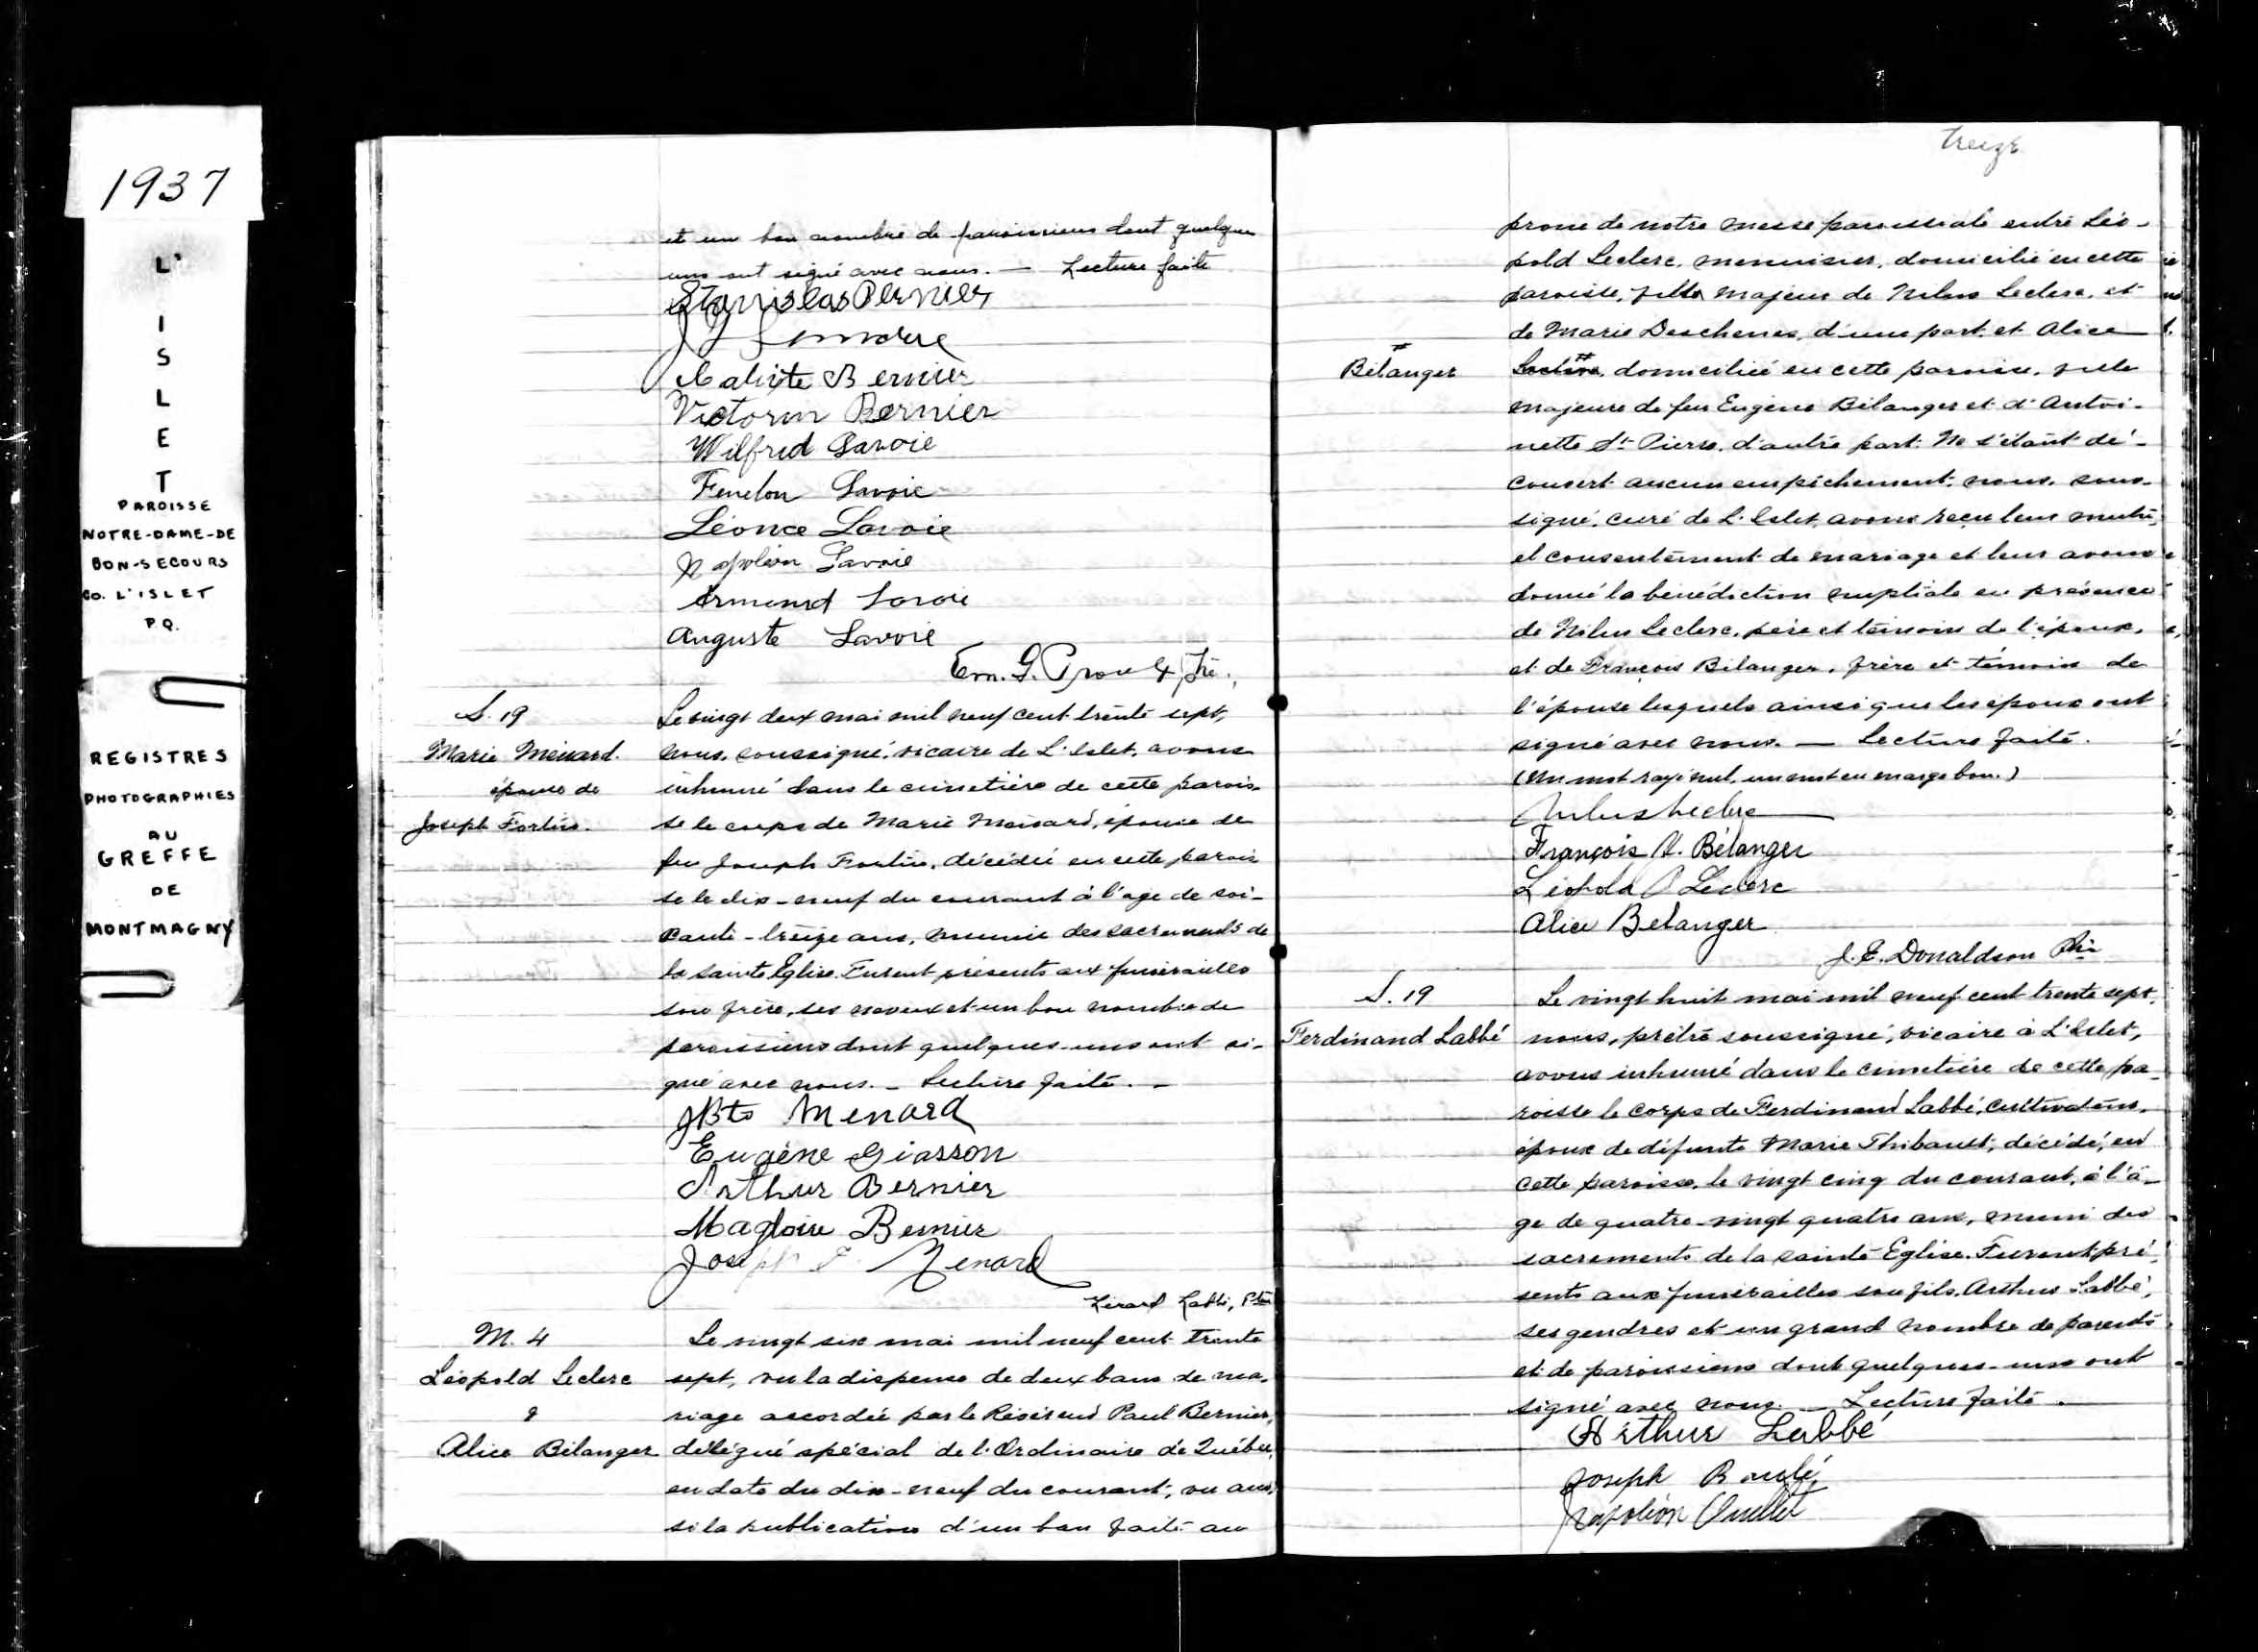 1937
L'
I
S
L
E
T
PAROISSE
NOTRE-DAME-DE
BON-SECOURS
CO. L'ISLET
P.Q.
REGISTRES
PHOTOGRAPHIES
AU
GREFFE
DE
MONTMAGNY
et un bon nombre de paroissiens dont quelques
uns ont signé avec nous. — Lecture faite
Stanislas Bernier
J
Calixte Bernier
Victorin Bernier
Wilfrid Savoie
Fenelon Savoie
Léonce Savoie
Napoléon Savoie
Armand Savoie
Auguste Savoie
Em. G. Proulx, Ptre.
S. 19
Marie Ménard.
épouse de
Joseph Fortin.
Le vingt deux mai mil neuf cent trente sept,
nous, soussigné, vicaire de L'Islet, avons
inhumé dans le cimetière de cette parois-
se le corps de Marie Menard, épouse de
feu Joseph Fortin, décédée en cette parois
se le dix-neuf du courant à l'age de soi-
xante-treize ans, munie des sacrements de
la sainte Eglise. Furent présents aux funérailles
son frère, ses neveux et un bon nombre de
paroissiens dont quelques-uns ont si-
gné avec nous. — Lecture faite. —
JBte Menard
Eugène Giasson
Arthur Bernier
Magloire Bernier
Joseph F. Menard
Labbé, Ptre
M. 4
Léopold Leclerc
&
Alice Bélanger
Le vingt six mai mil neuf cent trente
sept, vu la dispense de deux bans de ma-
riage accordée par le Révérend Paul Bernier,
délégué spécial de l'Ordinaire de Québec,
en date du dix-neuf du courant, vu aus-
si la publication d'un ban faite au
treize
prone de notre messe paroissiale entre Léo-
pold Leclerc, menuisier, domicilié en cette
paroisse, fils majeur de Nilus Leclerc, et
de Marie Deschenes, d'une part, et Alice
# Bélanger
Leclerc #, domiciliée en cette paroisse, fille
majeure de feu Eugène Bélanger et d'Antoi-
nette St-Pierre, d'autre part. Ne s'étant dé-
couvert aucun empêchement, nous, sous-
signé, curé de L'Islet, avons reçu leur mutu-
el consentement de mariage et leur avons
donné la bénédiction nuptiale en présence
de Nilus Leclerc, père et témoin de l'époux,
et de François Bélanger, frère et témoin de
l'épouse lesquels ainsi que les époux ont
signé avec nous. — Lecture faite.
(Un mot rayé nul, un mot en marge bon.)
Nilus Leclerc
François N. Bélanger
Léopold Leclerc
Alice Belanger
J. E. Donaldson Ptre
S. 19
Ferdinand Labbé
Le vingt huit mai mil neuf cent trente sept,
nous, prêtre soussigné, vicaire à L'Islet,
avons inhumé dans le cimetière de cette pa-
roisse le corps de Ferdinand Labbé, cultivateur,
époux de défunte Marie Thibault, décédé, en
cette paroisse, le vingt cinq du courant, à l'â-
ge de quatre-vingt quatre ans, muni des
sacrements de la sainte Eglise. Furent pré-
sents aux funérailles son fils, Arthur Labbé,
ses gendres et un grand nombre de parents
et de paroissiens dont quelques-uns ont
signé avec nous. — Lecture faite.
Arthur Labbé
Joseph
Napoléon Ouellet